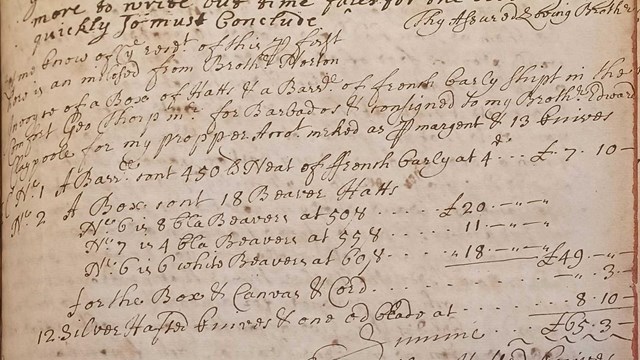 more to write but time fales for the
quickly So must Conclude
Thy Assured & Loving Brother
me know of ye resdt of this p first
here is an inclosed from Brothr Norton
Invoyce of a Box of Hatts & a Barr. of french barly Shipt in the
Comfort Geo Thorp mr for Barbados & consigned to my Brothr Edward
Claypoole for my propper Accot mrked as p margent & 13 knives
No 1 A Barr. cont 450 lb Neat of ffrench barly at 4d £ 7. 10 -
No 2 A Box cont 18 Beaver Hatts
No 6 is 8 bla Beavers at 50s £20 - " - " -
No 7 is 4 bla Beavers at 55s 11 - " - " -
No 6 is 6 white Beavers at 60s 18 - " - " - £49 - " -
for the Box & Canvas & Cord " 3 -
12 Silver Hafted knives & one od blade at 8. 10 -
Summe £65. 3 -